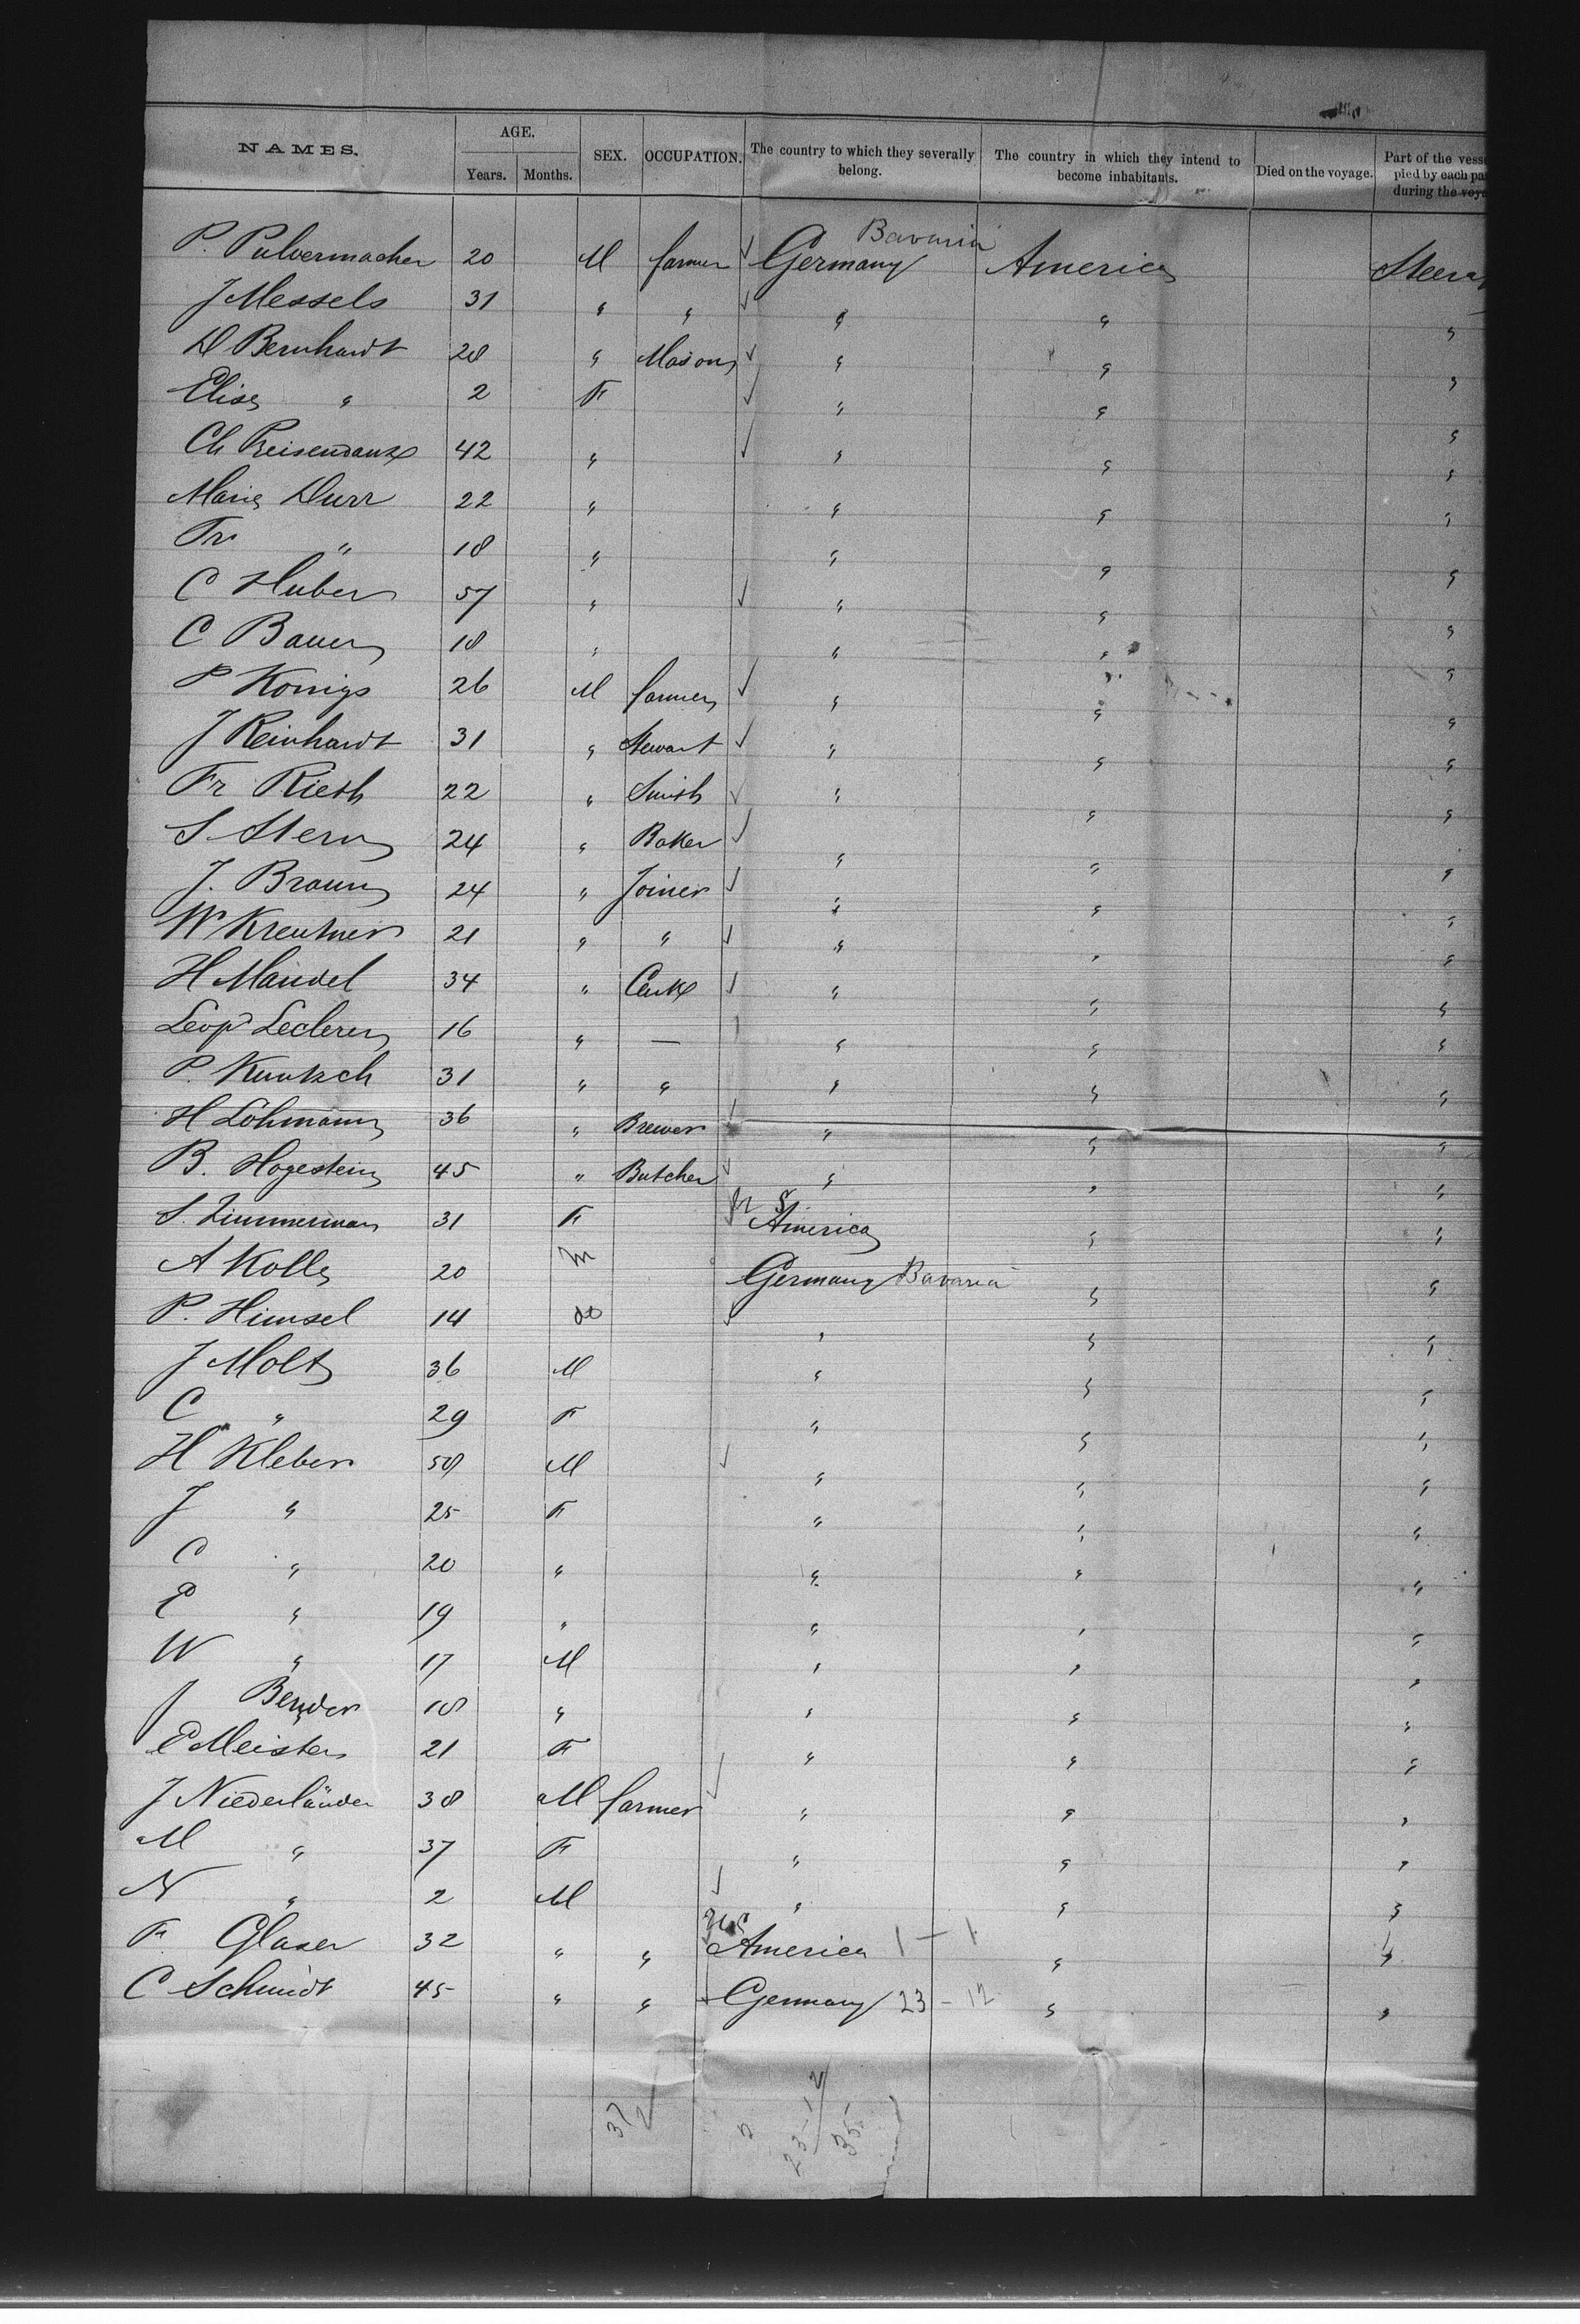 NAMES. AGE. Years. Months. SEX. OCCUPATION. The country to which they severally belong. The country in which they intend to become inhabitants. Died on the voyage. Part of the vess pied by each pa during the voya
Bavaria
P. Pulvermacher 20 M farmer Germany America Steera
J Messels 31 " " " " "
D Bernhardt 28 " Mason " " "
Elise " 2 F " " "
Ch Reisendanz 42 " " " "
Marie Durr 22 " " " "
Fr " 18 " " " "
C Huber 57 " " " "
C Bauer 18 " " " "
P Konigs 26 M farmer " " "
J Reinhardt 31 " Stewart " " "
Fr Rieth 22 " Smith " " "
S. Stern 24 " Baker " " "
J. Braun 24 " Joiner " " "
W Kreutner 21 " " " " "
H Mandel 34 " Clerk " " "
Leop Leclere 16 " — " " "
P. Kuntzch 31 " " " " "
H Lohmann 36 " Brewer " " "
B. Hogestein 45 " Butcher " " "
S. Zimmerman 31 F America " "
A Kolle 20 m Germany Bavaria " "
P. Himsel 14 do " " "
J Molt 36 M " " "
C " 29 F " " "
H Kleber 58 M " " "
J " 25 F " " "
C " 20 " " " "
E " 19 " " " "
W " 17 M " " "
J Bender 18 " " " "
E Meister 21 F " " "
J Niederländer 38 M farmer " " "
M " 37 F " " "
N " 2 M " " "
US
F. Glaser 32 " " America 1 - 1 " "
C Schmidt 45 " " Germany 23 - 12 " "
37
2
23-12
35